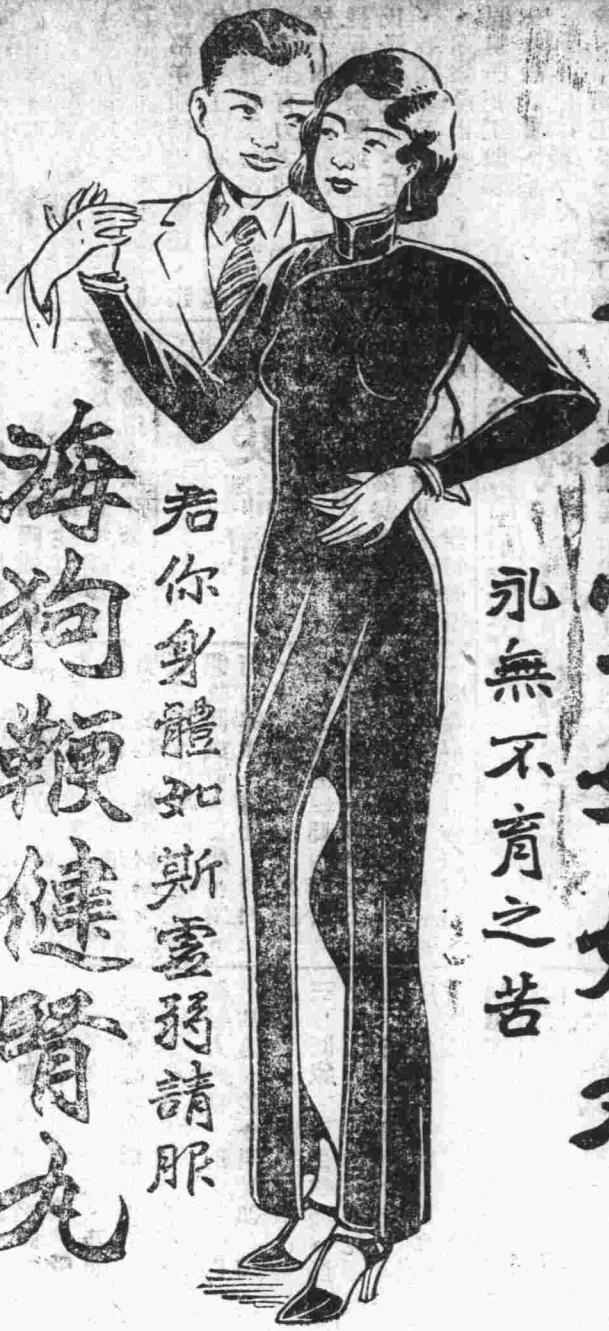 永無不育之苦
君你身體如斯虛弱請服
海狗鞭健腎丸